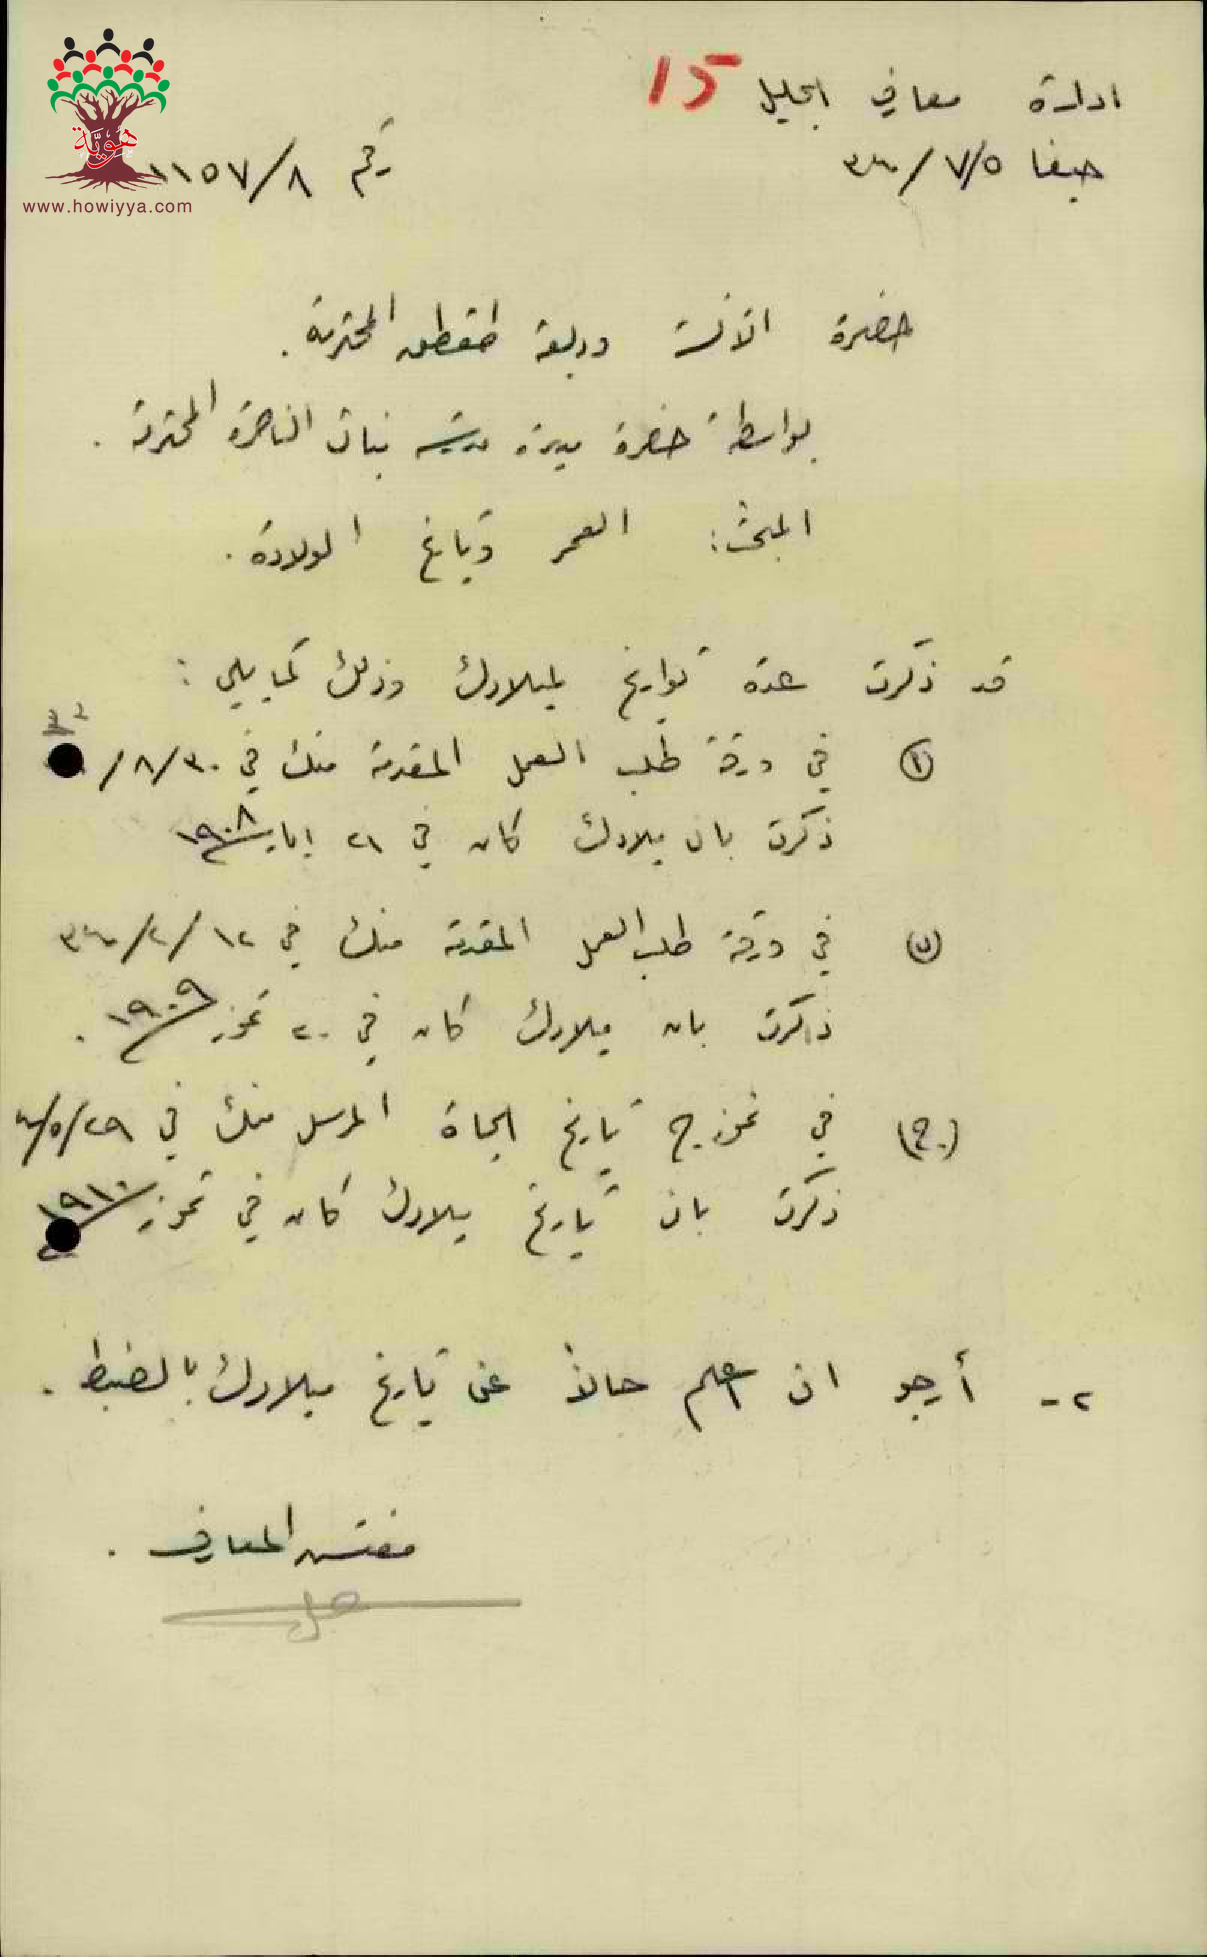 ادارة معارف الجليل 15
حيفا ٧/٥/
رقم ١١٥٧/٨
هوية
www.howiyya.com
حضرة الآنسة وديعة طقطق المحترمة.
بواسطة حضرة مديرة مدرسة بنات الناصرة المحترمة.
المبحث: العمر وتاريخ الولادة.
قد ذكرت عدة تواريخ لميلادك وذلك كما يلي:
٣٢
(١) في ورقة طلب العمل المقدمة منك في ٨/٣٠/
ذكرت بان ميلادك كان في ٢١ ايار ١٩٠٨
(ب) في ورقة طلب العمل المقدمة منك في ٢/١٢/
ذكرت بان ميلادك كان في ٢٠ تموز ١٩٠٩.
(ج) في نموذج تاريخ الحياة المرسل منك في ٥/٢٩/
ذكرت بان تاريخ ميلادك كان في تموز ١٩١٠
٢- أرجو ان اعلم حالاً عن تاريخ ميلادك بالضبط.
مفتش المعارف.